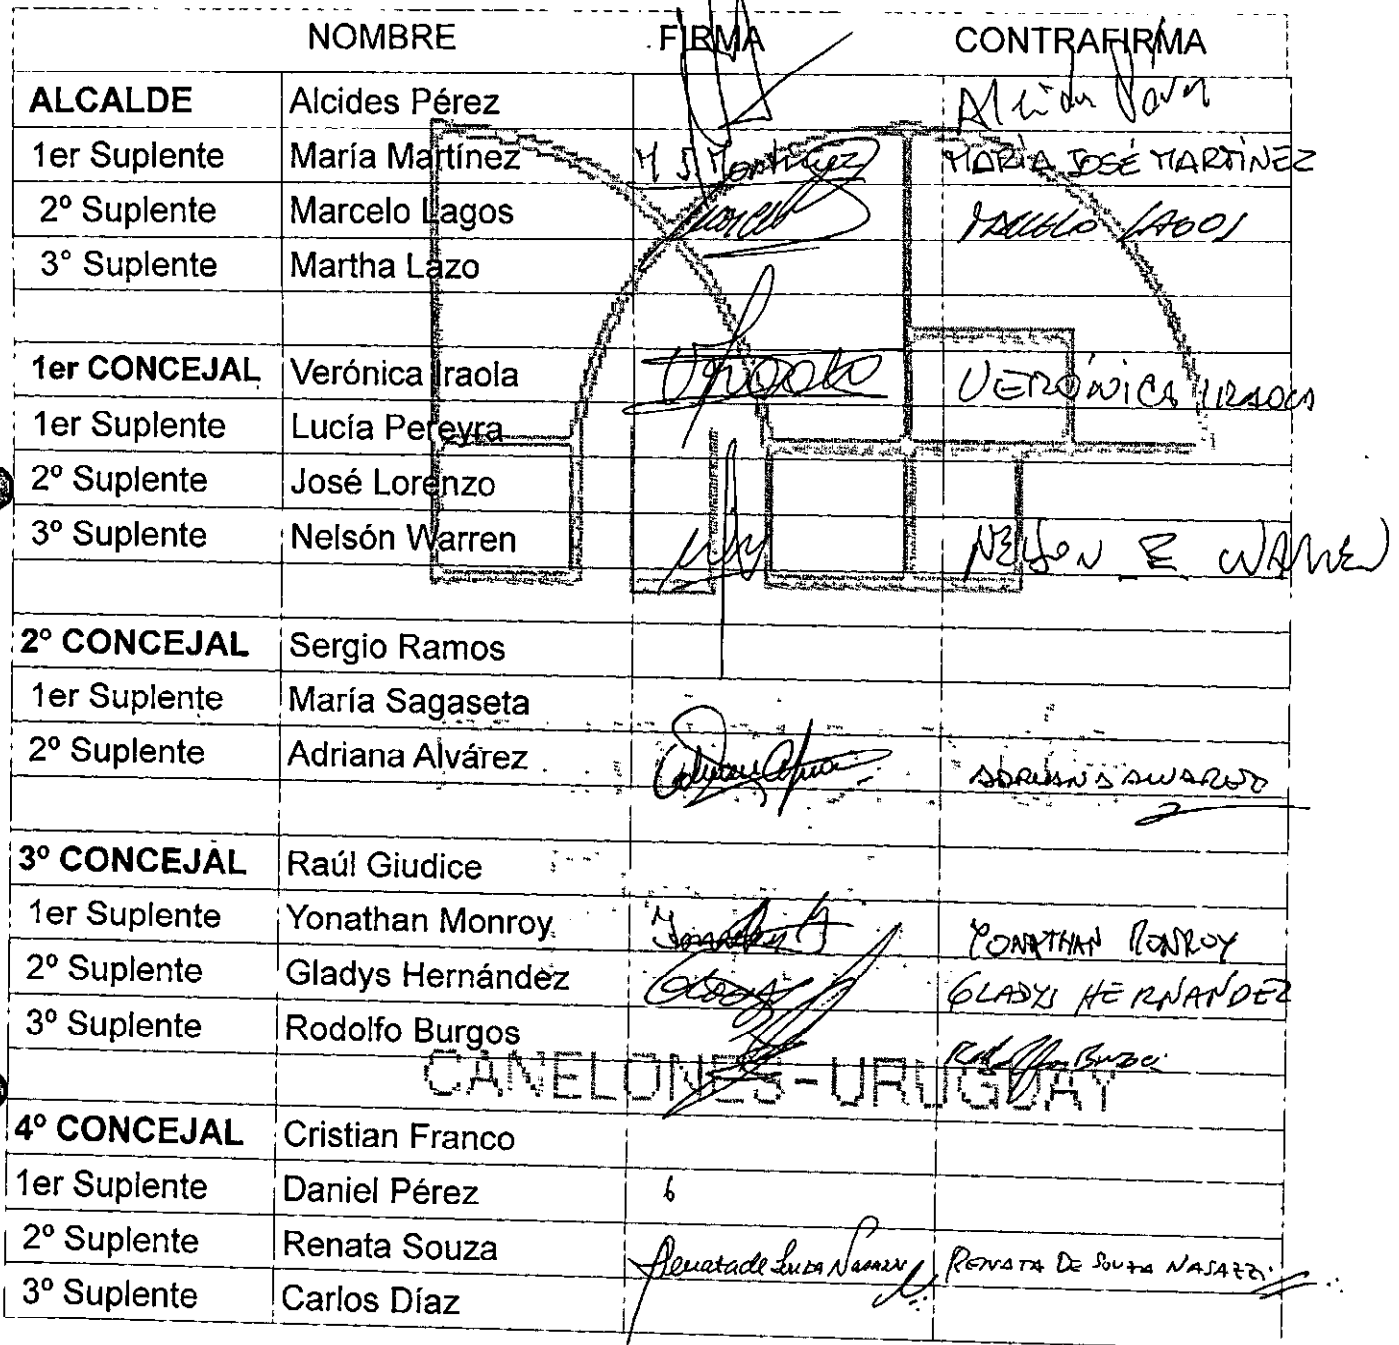 NOMBRE FIRMA CONTRAFIRMA
ALCALDE Alcides Pérez
1er Suplente María Martínez M J Martínez MARÍA JOSÉ MARTÍNEZ
2º Suplente Marcelo Lagos MARCELO LAGOS
3° Suplente Martha Lazo
1er CONCEJAL Verónica Iraola VERÓNICA IRAOLA
1er Suplente Lucía Pereyra
2º Suplente José Lorenzo
3º Suplente Nelsón Warren NELSON E WARREN
2º CONCEJAL Sergio Ramos
1er Suplente María Sagaseta
2º Suplente Adriana Alvárez ADRIANA ALVAREZ
3º CONCEJAL Raúl Giudice
1er Suplente Yonathan Monroy YONATHAN MONROY
2º Suplente Gladys Hernández GLADYS HERNÁNDEZ
3º Suplente Rodolfo Burgos
CANELONES-URUGUAY
4º CONCEJAL Cristian Franco
1er Suplente Daniel Pérez
2º Suplente Renata Souza Renata de Souza Nasazzi RENATA DE SOUZA NASAZZI
3º Suplente Carlos Díaz